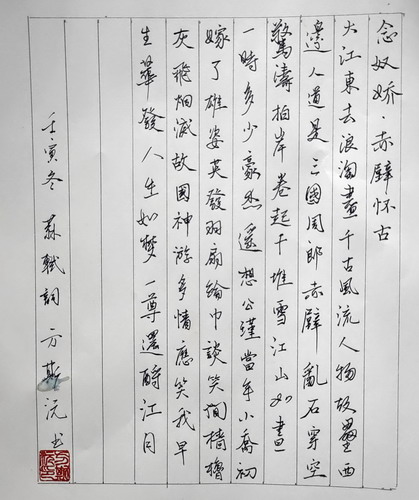 念奴娇·赤壁怀古
大江東去浪淘盡千古風流人物故壘西
邊人道是三國周郎赤壁亂石穿空
驚濤拍岸卷起千堆雪江山如畫
一時多少豪杰遥想公瑾當年小喬初
嫁了雄姿英發羽扇綸巾談笑間檣櫓
灰飛烟滅故國神游多情應笑我早
生華發人生如梦一尊還酹江月
壬寅冬 蘇軾詞 方斯沅书